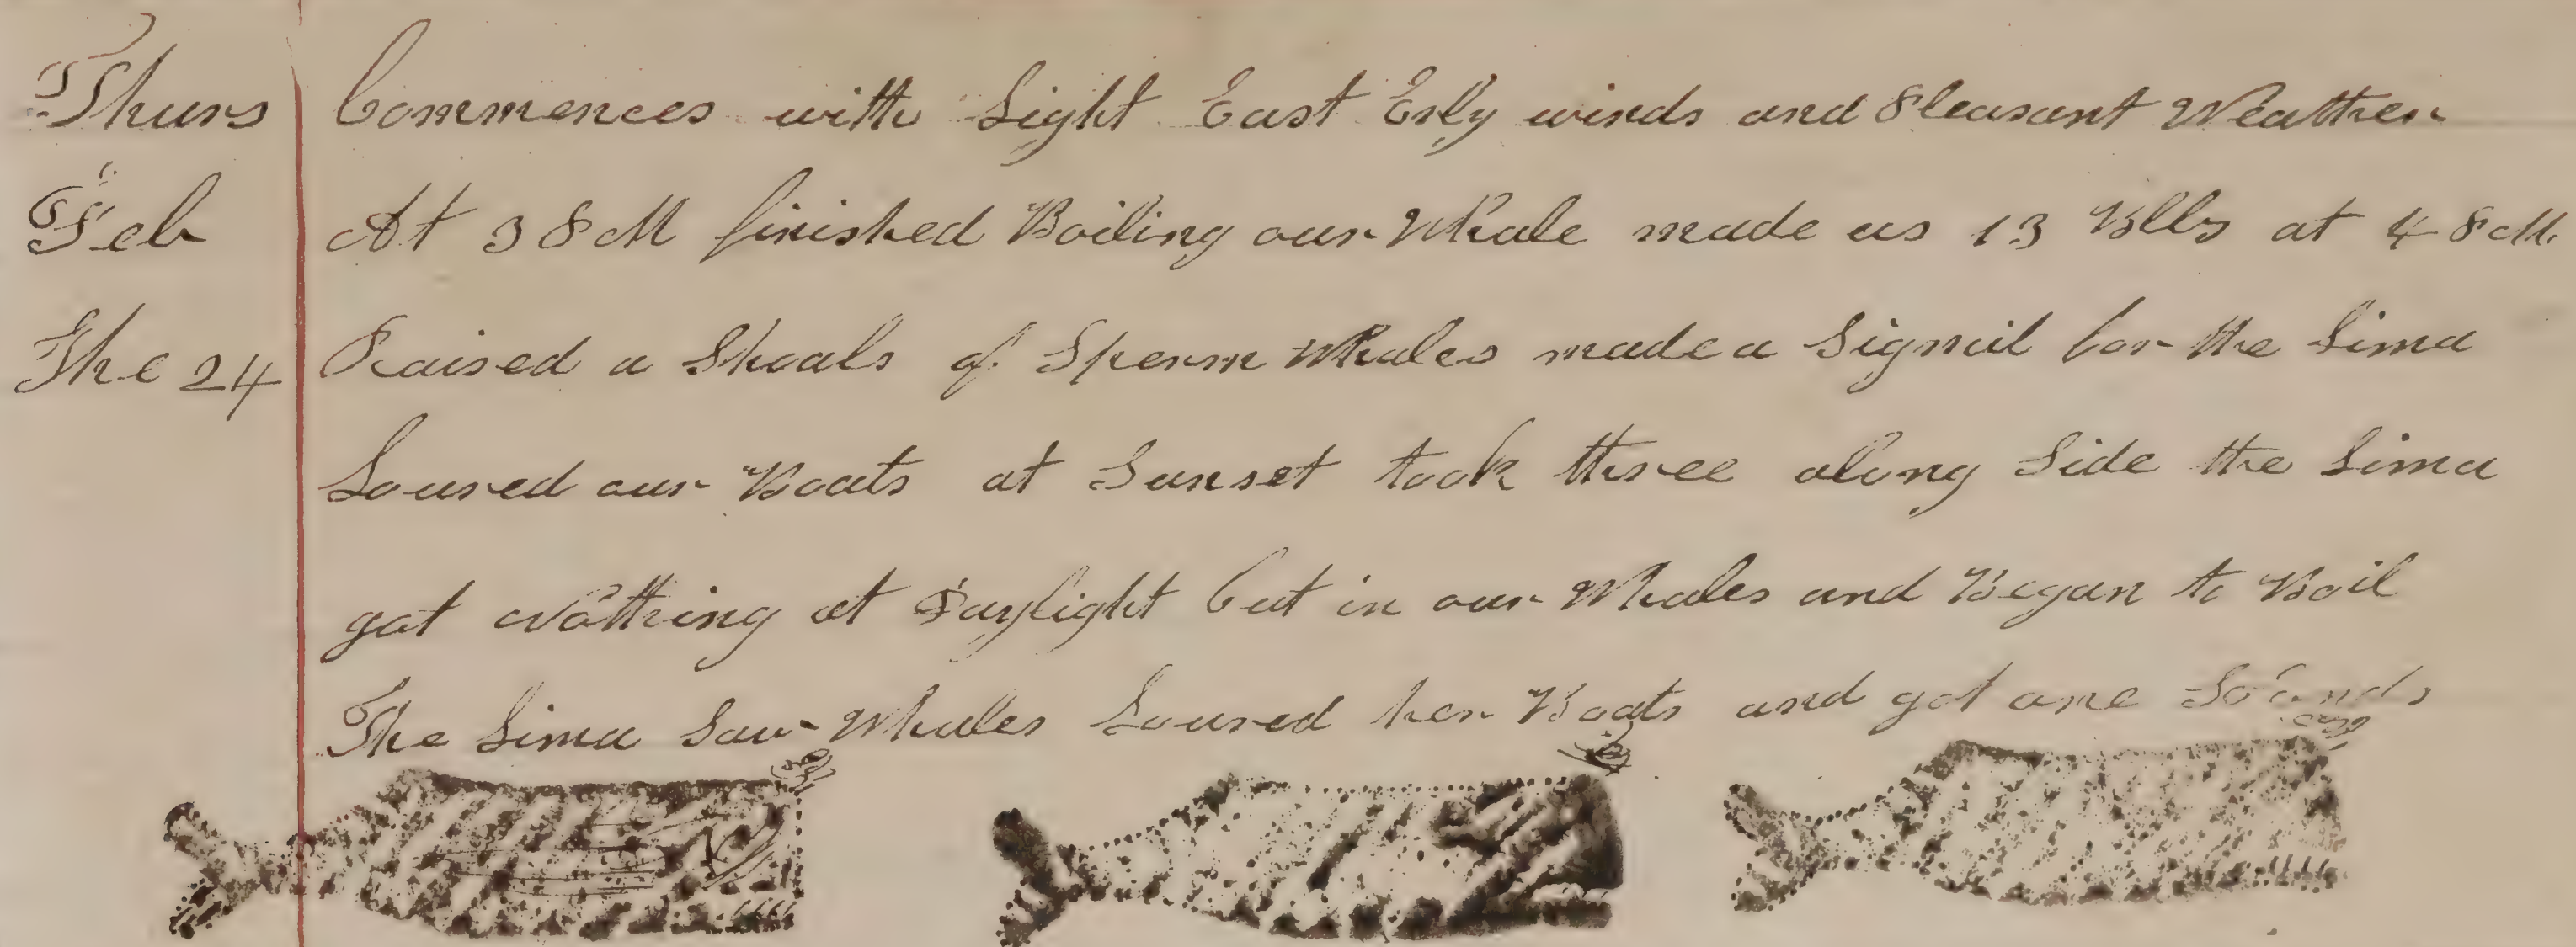 Thurs Commences with Light East Erly winds and Pleasant Weather
Feb At 3 P M finished Boiling our Whale made us 13 Blls at 4 P M.
The 24 Raised a Shoals of Sperm Whales made a Signail for the Lima
Loured our Boats at Sunset took three along Side the Lima
got Nothing at Daylight Cut in our Whales and Began to Boil
The Lima Saw Whales Loured her Boats and got one